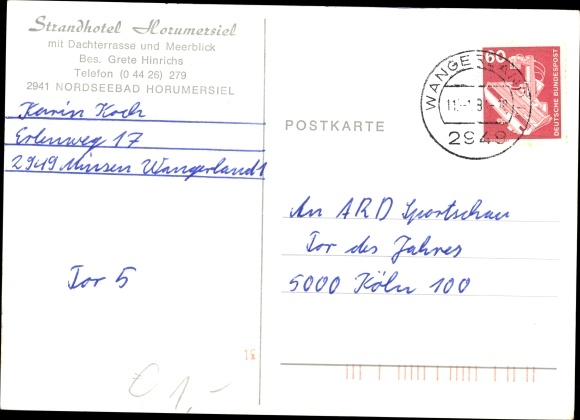 Strandhotel Horumersiel
mit Dachterrasse und Meerblick
Bes. Grete Hinrichs
Telefon (0 44 26) 279
2941 NORDSEEBAD HORUMERSIEL
Karin Koch
Erlenweg 17
2949 Minsen Wangerland 1
Tor 5
€ 1,-
16
POSTKARTE
2949
60
DEUTSCHE BUNDESPOST
An ARD Sportschau
Tor des Jahres
5000 Köln 100